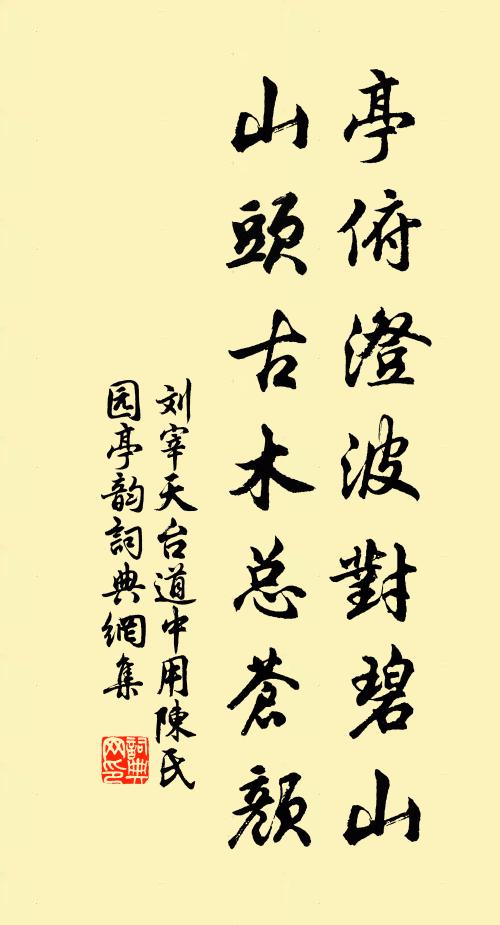 亭俯澄波對碧山
山頭古木总蒼顔
刘宰天台道中用陳氏
园亭韵詞典網集
詞典
网印